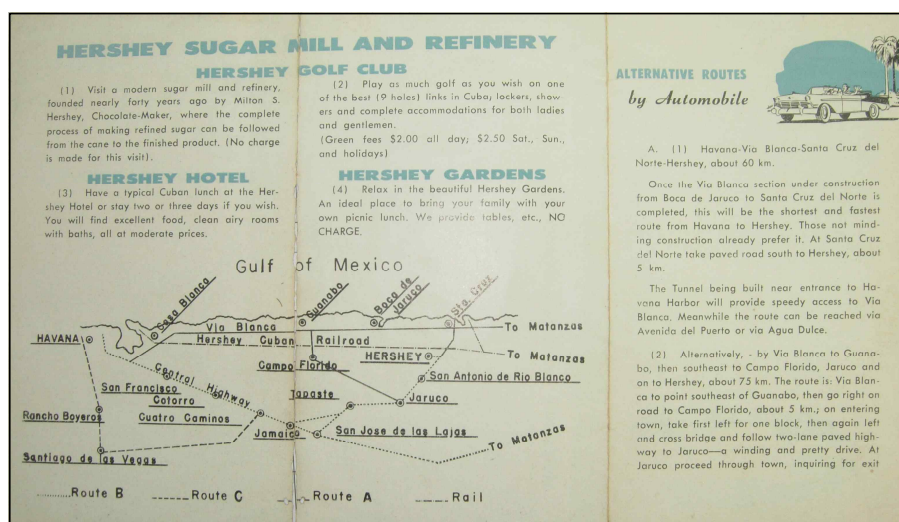 HERSHEY SUGAR MILL AND REFINERY
HERSHEY GOLF CLUB
(1) Visit a modern sugar mill and refinery,
founded nearly forty years ago by Milton S.
Hershey, Chocolate-Maker, where the complete
process of making refined sugar can be followed
from the cane to the finished product. (No charge
is made for this visit).
(2) Play as much golf as you wish on one
of the best (9 holes) links in Cuba, lockers, show-
ers and complete accommodations for both ladies
and gentlemen.
(Green fees $2.00 all day; $2.50 Sat., Sun.,
and holidays)
HERSHEY HOTEL
(3) Have a typical Cuban lunch at the Her-
shey Hotel or stay two or three days if you wish.
You will find excellent food, clean airy rooms
with baths, all at moderate prices.
HERSHEY GARDENS
(4) Relax in the beautiful Hershey Gardens.
An ideal place to bring your family with your
own picnic lunch. We provide tables, etc., NO
CHARGE.
Gulf of Mexico
Casa Blanca
Guanabo
Boca de
Jaruco
Sta. Cruz
Via Blanca
To Matanzas
HAVANA
Hershey Cuban Railroad
HERSHEY
To Matanzas
Campo Florido
San Antonio de Rio Blanco
Central Highway
San Francisco
Cotorro
Tapaste
Jaruco
Rancho Boyeros
Cuatro Caminos
Jamaica
San Jose de las Lajas
To Matanzas
Santiago de las Vegas
Route B
Route C
Route A
Rail
ALTERNATIVE ROUTES
by Automobile
A. (1) Havana-Via Blanca-Santa Cruz del
Norte-Hershey, about 60 km.
Once the Via Blanca section under construction
from Boca de Jaruco to Santa Cruz del Norte is
completed, this will be the shortest and fastest
route from Havana to Hershey. Those not mind-
ing construction already prefer it. At Santa Cruz
del Norte take paved road south to Hershey, about
5 km.
The Tunnel being built near entrance to Ha-
vana Harbor will provide speedy access to Via
Blanca. Meanwhile the route can be reached via
Avenida del Puerto or via Agua Dulce.
(2) Alternatively, - by Via Blanca to Guana-
bo, then southeast to Campo Florido, Jaruco and
on to Hershey, about 75 km. The route is: Via Blan-
ca to point southeast of Guanabo, then go right on
road to Campo Florido, about 5 km.; on entering
town, take first left for one block, then again left
and cross bridge and follow two-lane paved high-
way to Jaruco—a winding and pretty drive. At
Jaruco proceed through town, inquiring for exit